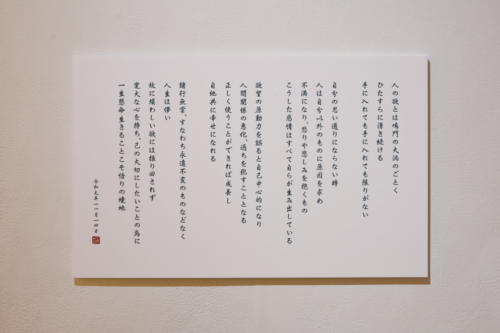 人の欲とは鳴門の大渦のごとく
ひたすらに渦き続ける
手に入れても手に入れても限りがない
自分の思い通りにならない時
人は自分以外のものに原因を求め
不満になり、怒りや悲しみを抱くもの
こうした感情はすべて自らが生み出している
欲望の原動力を誤ると自己中心的になり
人間関係の悪化、過ちを犯すこととなる
正しく使うことができれば成長し
自他共に幸せになれる
諸行無常、すなわち永遠不変のものなどなく
人生は儚い
故に煩わしい欲には振り回されず
寛大な心を持ち、己の大切にしたいことの為に
一生懸命生きることこそ悟りの境地
令和元年十一月一四日